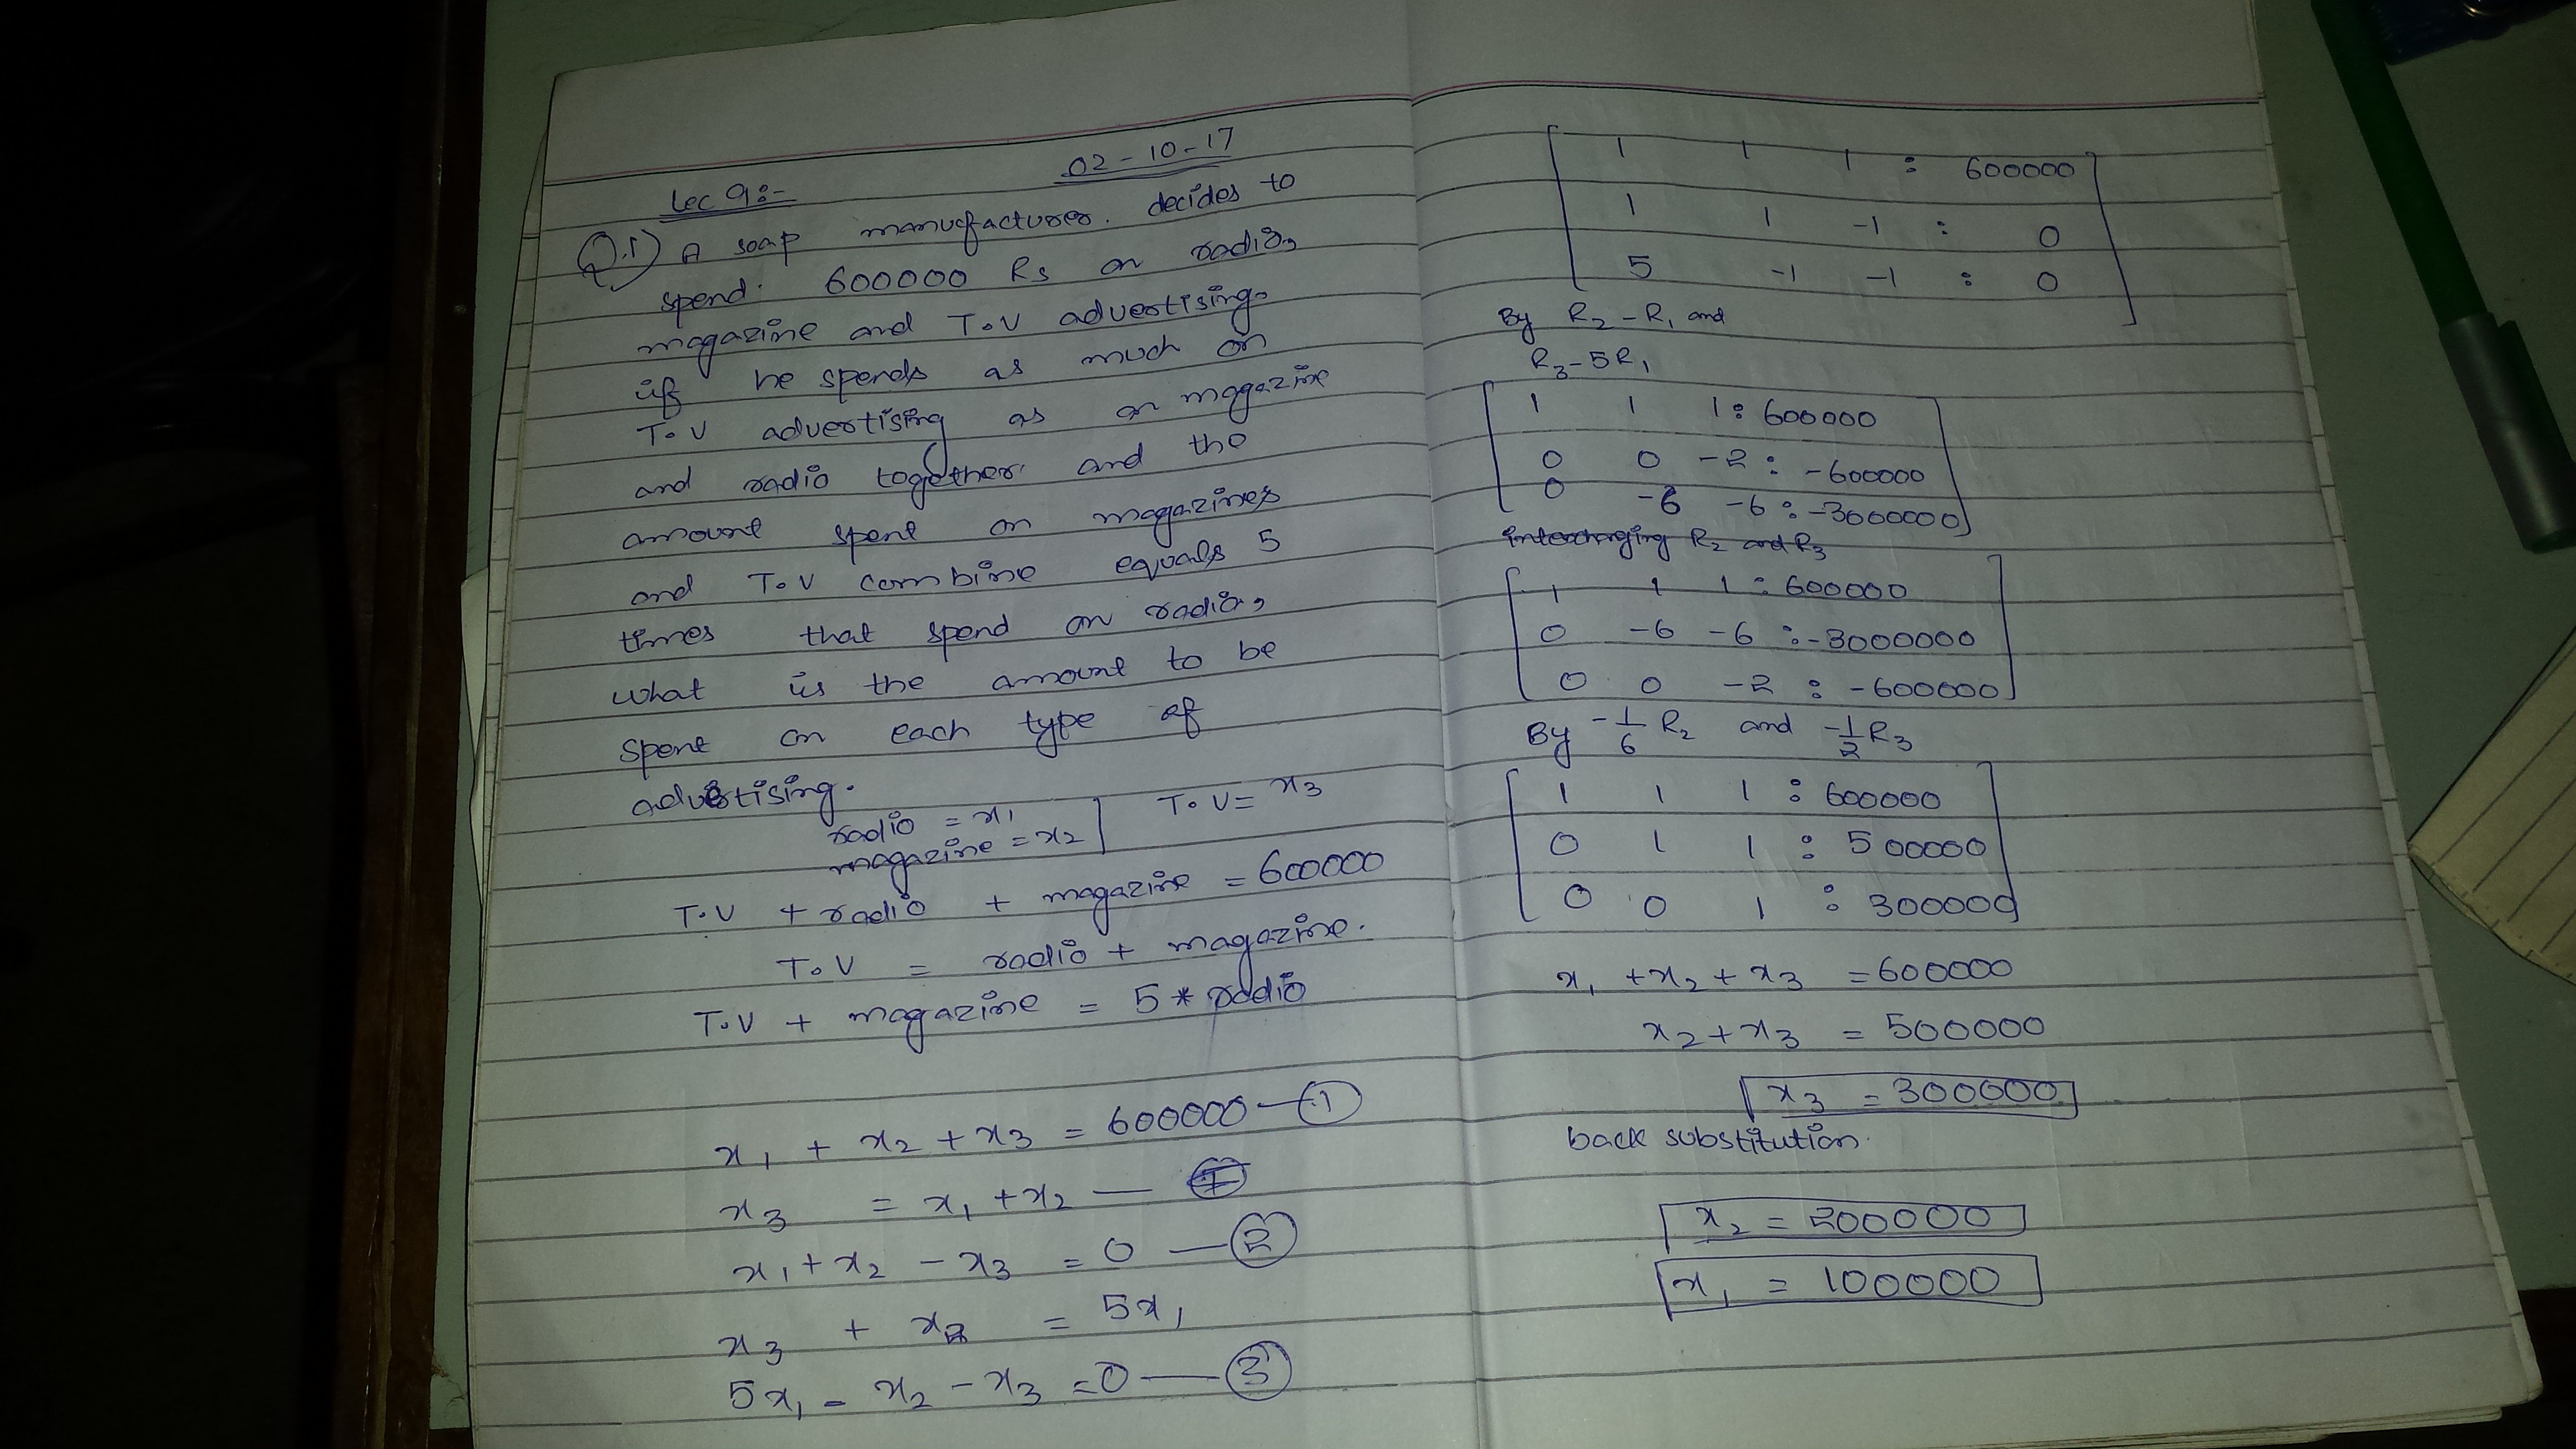 02-10-17
Lec 9:-
Q.1) A soap manufacturer. decides to
spend. 600000 Rs on radio,
magazine and T.V advertising.
if he spends as much on
T.V advertising as on magazine
and radio together and the
amount spent on magazines
and T.V combine equals 5
times that spend on radio,
what is the amount to be
spent on each type of
advertising.
radio = x1
magazine = x2] T.V = x3
T.V + radio + magazine = 600000
T.V = radio + magazine.
T.V + magazine = 5 * radio
x1 + x2 + x3 = 600000 — (1)
x3 = x1 + x2 —
x1 + x2 - x3 = 0 — (2)
x3 + x2 = 5x1
5x1 - x2 - x3 = 0 — (3)
[1 1 1 : 600000]
[1 1 -1 : 0]
[5 -1 -1 : 0]
By R2 - R1 and
R3 - 5R1
[1 1 1 : 600000]
[0 0 -2 : -600000]
[0 -6 -6 : -3000000]
interchanging R2 and R3
[1 1 1 : 600000]
[0 -6 -6 : -3000000]
[0 0 -2 : -600000]
By -1/6 R2 and -1/2 R3
[1 1 1 : 600000]
[0 1 1 : 500000]
[0 0 1 : 300000]
x1 + x2 + x3 = 600000
x2 + x3 = 500000
x3 = 300000
back substitution.
x2 = 200000
x1 = 100000